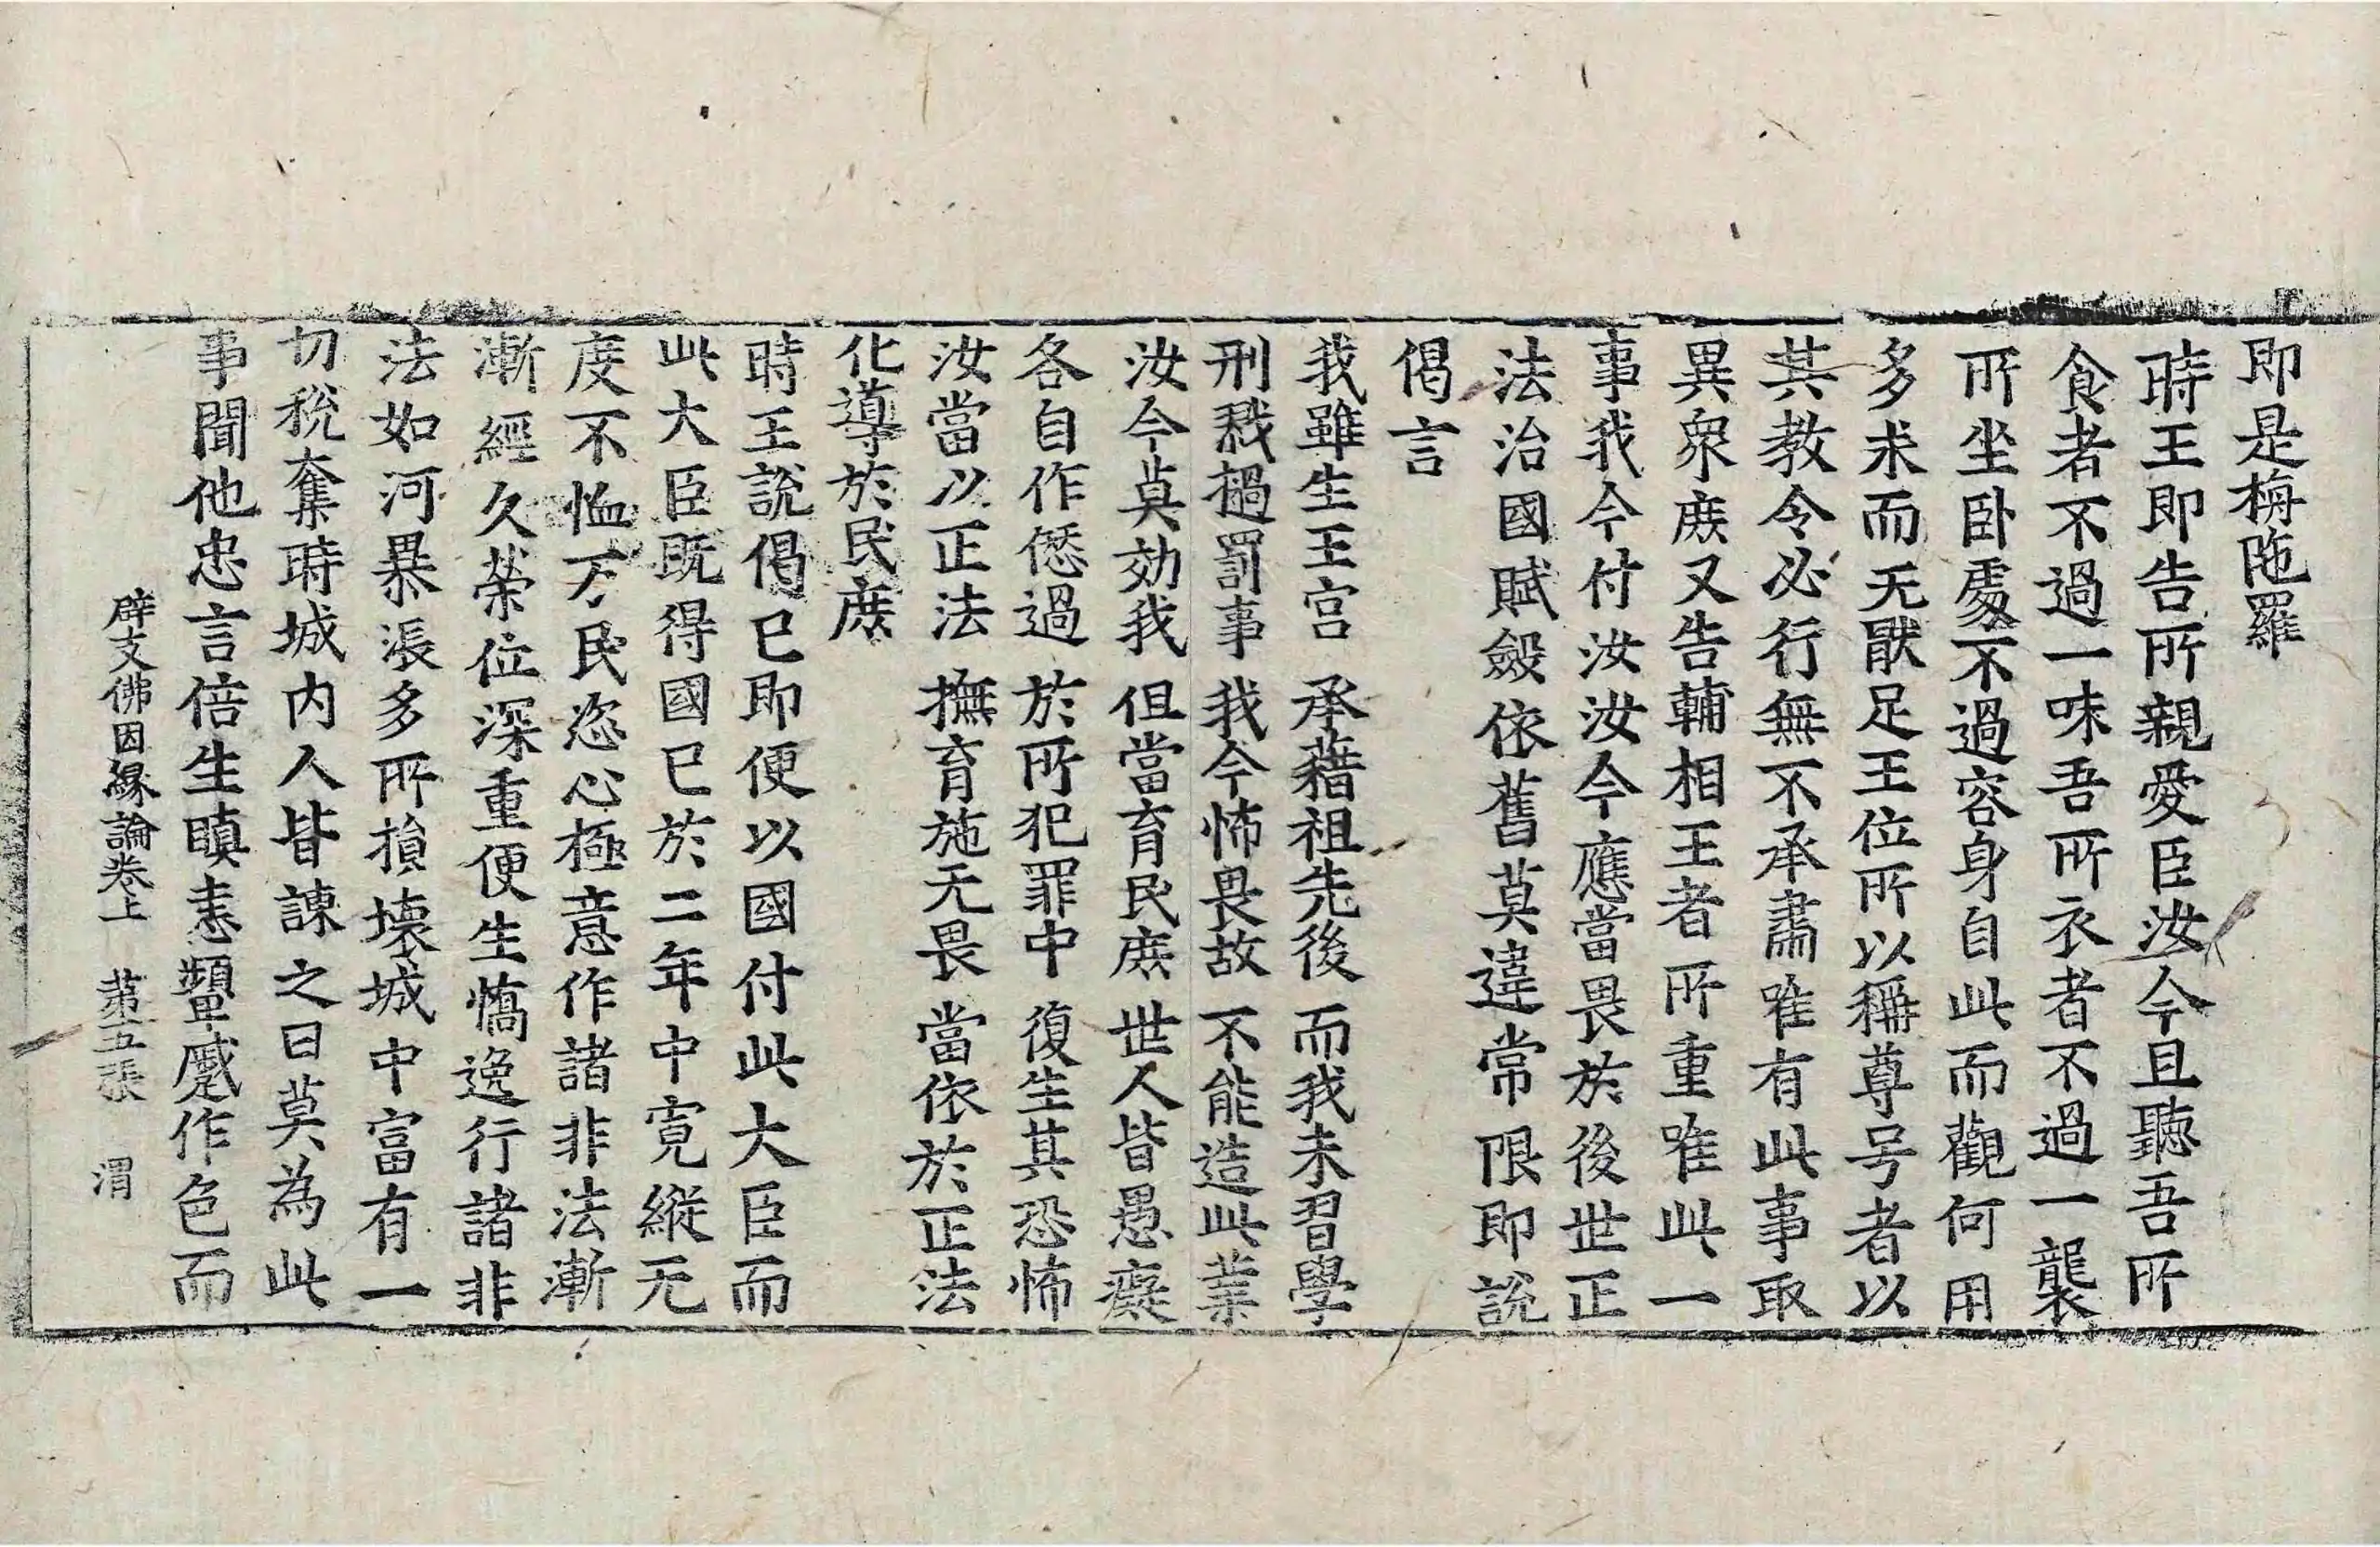 即是栴陁羅
時王即告所親愛臣汝今且聽吾所
食者不過一味吾所衣者不過一襲
所坐卧處不過容身自此而觀何用
多求而无猒足王位所以稱尊号者以
其教令必行無不承肅唯有此事取
異衆庶又告輔相王者所重唯此一
事我今付汝汝今應當畏於後世正
法治國賦斂依舊莫違常限即說
偈言
我雖生王宫 承藉祖先後 而我未習學
刑戮撾罰事 我今怖畏故 不能造此業
汝今莫効我 但當育民庶 世人皆愚癡
各自作愆過 於所犯罪中 復生其恐怖
汝當以正法 撫育施无畏 當依於正法
化導於民庶
時王說偈已即便以國付此大臣而
此大臣既得國已於二年中寛縱无
度不恤下民恣心極意作諸非法漸
漸經久榮位深重便生憍逸行諸非
法如河暴漲多所損壞城中富有一
切稅奪時城内人皆諫之曰莫為此
事聞他忠言倍生瞋恚顰蹙作色而
辟支佛因緣論卷上 苐五張 渭